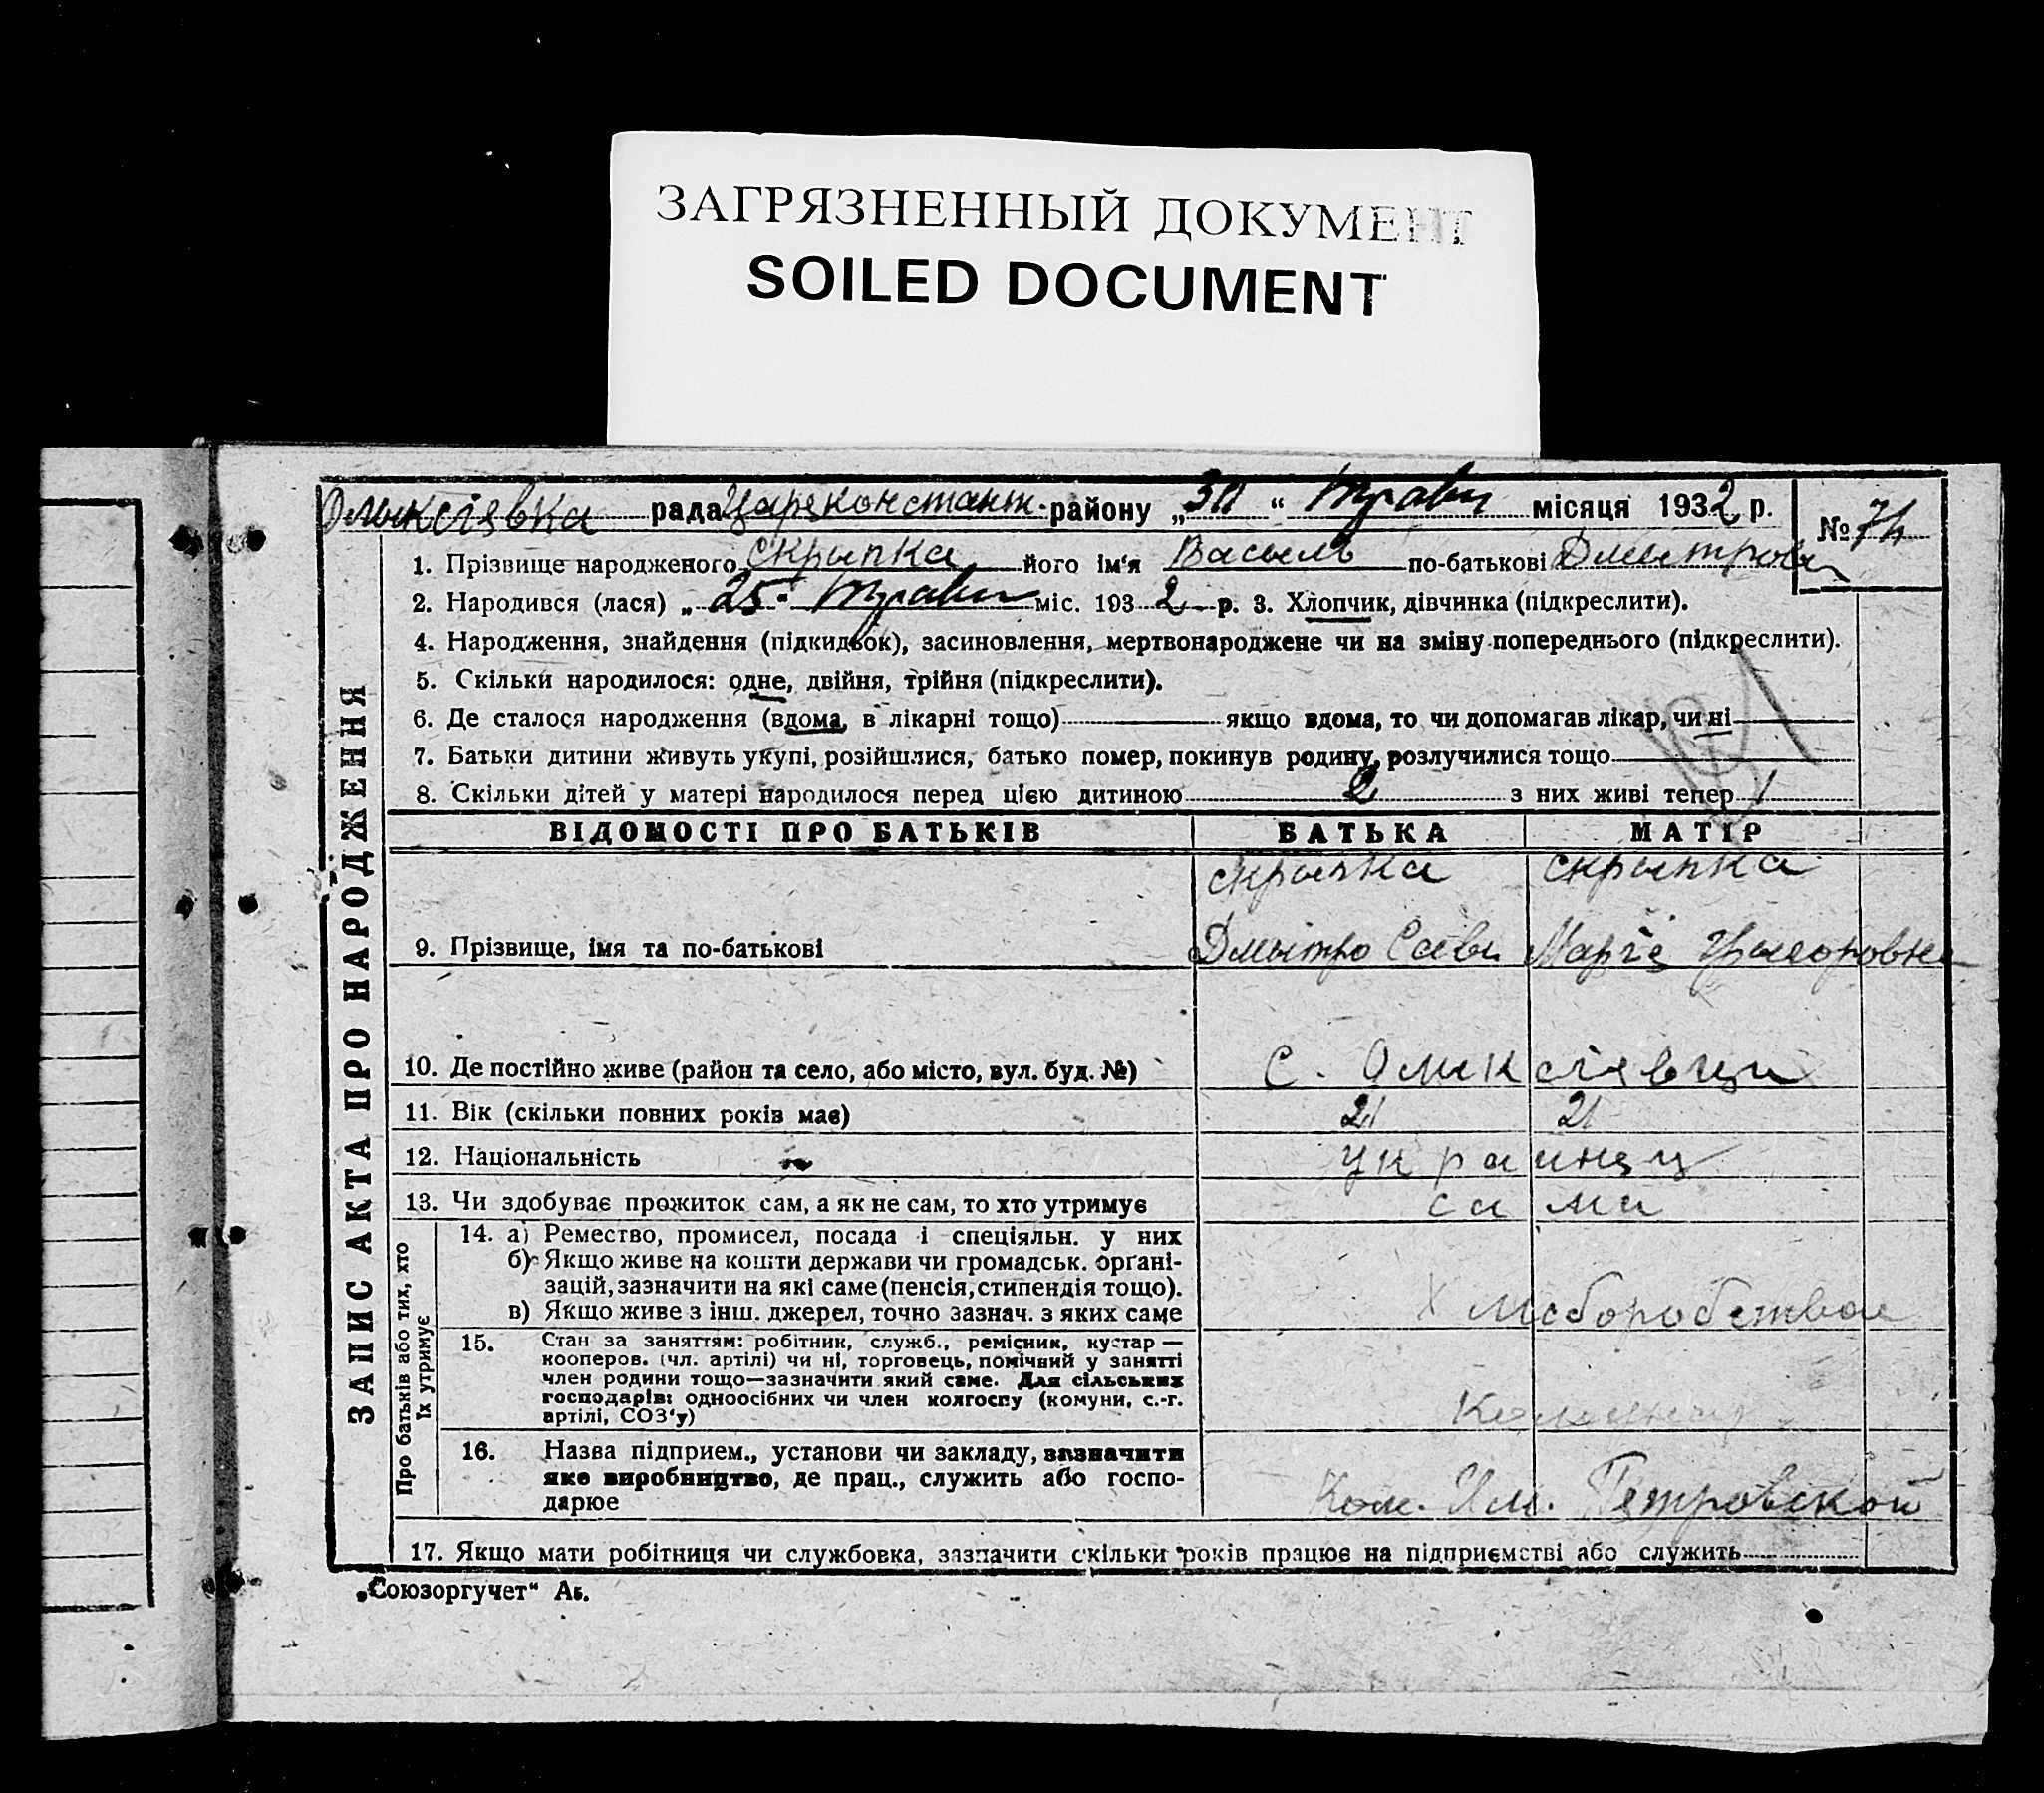 ЗАГРЯЗНЕННЫЙ ДОКУМЕНТ
SOILED DOCUMENT
Олыксіявка рада Царяконстант. району „30“ Травня місяця 1932 р.
№ 74
1. Прізвище народженого Скрыпка його ім‘я Васыль по-батькові Дмытрови
2. Народився (лася) „25“ Травня міс. 1932 р. 3. Хлопчик, дівчинка (підкреслити).
4. Народження, знайдення (підкидьок), засиновлення, мертвонароджене чи на зміну попереднього (підкреслити).
5. Скільки народилося: одне, двійня, трійня (підкреслити).
6. Де сталося народження (вдома, в лікарні тощо) якщо вдома, то чи допомагав лікар, чи ні
7. Батьки дитини живуть укупі, розійшлися, батько помер, покинув родину, розлучилися тощо
8. Скільки дітей у матері народилося перед цією дитиною 2 з них живі тепер 1
ЗАПИС АКТА ПРО НАРОДЖЕННЯ
ВІДОМОСТІ ПРО БАТЬКІВ БАТЬКА МАТІР
скрыпка скрыпка
9. Прізвище, імя та по-батькові Дмытро Савв Марія Грыгоровна
10. Де постійно живе (район та село, або місто, вул. буд. №) С. Олыксіявци
11. Вік (скільки повних років має) 21 21
12. Національність украинец
13. Чи здобуває прожиток сам, а як не сам, то хто утримує сами
Про батьків або тих, хто
їх утримує
14. а) Ремество, промисел, посада і спеціяльн. у них
б) Якщо живе на кошти держави чи громадськ. органі-
зацій, зазначити на які саме (пенсія, стипендія тощо).
в) Якщо живе з інш. джерел, точно зазнач. з яких саме Хлеборобством
15. Стан за заняттям: робітник, служб., ремісник, кустар —
кооперов. (чл. артілі) чи ні, торговець, помічний у занятті
член родини тощо—зазначити який саме. Для сільських
господарів: одноосібних чи член колгоспу (комуни, с.-г.
артілі, СОЗ‘у)
16. Назва підприєм., установи чи закладу, зазначити
яке виробництво, де прац., служить або госпо-
дарює Кол. Им. Петровской
17. Якщо мати робітниця чи службовка, зазначити скільки років працює на підприємстві або служить
„Союзоргучет“